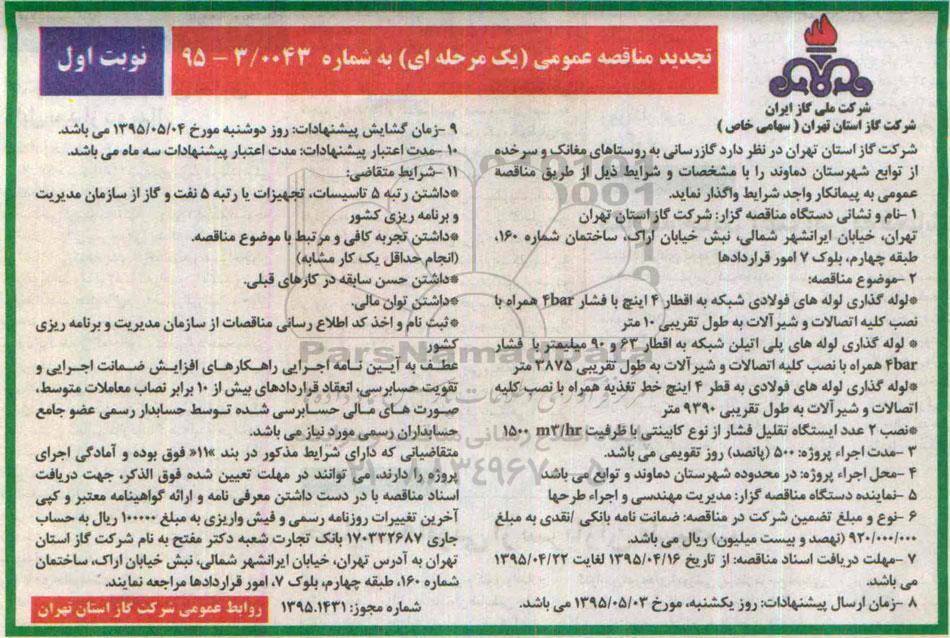 تجدید مناقصه عمومی (یک مرحله ای) به شماره ۳/۰۰۴۳ - ۹۵
نوبت اول
شرکت ملی گاز ایران
شرکت گاز استان تهران ( سهامی خاص )
شرکت گاز استان تهران در نظر دارد گازرسانی به روستاهای مغانک و سرخده
از توابع شهرستان دماوند را با مشخصات و شرایط ذیل از طریق مناقصه
عمومی به پیمانکار واجد شرایط واگذار نماید.
۱-نام و نشانی دستگاه مناقصه گزار: شرکت گاز استان تهران
تهران، خیابان ایرانشهر شمالی، نبش خیابان اراک، ساختمان شماره ۱۶۰،
طبقه چهارم، بلوک ۷ امور قراردادها
۲-موضوع مناقصه:
*لوله گذاری لوله های فولادی شبکه به اقطار ۴ اینچ با فشار ۴bar همراه با
نصب کلیه اتصالات و شیرآلات به طول تقریبی ۱۰ متر
* لوله گذاری لوله های پلی اتیلن شبکه به اقطار ۶۳ و ۹۰ میلیمتر با فشار
۴bar همراه با نصب کلیه اتصالات و شیرآلات به طول تقریبی ۳۸۷۵ متر
*لوله گذاری لوله های فولادی به قطر ۴ اینچ خط تغذیه همراه با نصب کلیه
اتصالات و شیرآلات به طول تقریبی ۹۳۹۰ متر
*نصب ۲ عدد ایستگاه تقلیل فشار از نوع کابینتی با ظرفیت ۱۵۰۰ m۳/hr
۳-مدت اجراء پروژه: ۵۰۰ (پانصد) روز تقویمی می باشد.
۴-محل اجراء پروژه: در محدوده شهرستان دماوند و توابع می باشد
۵-نماینده دستگاه مناقصه گزار: مدیریت مهندسی و اجراء طرحها
۶-نوع و مبلغ تضمین شرکت در مناقصه: ضمانت نامه بانکی /نقدی به مبلغ
۹۲۰/۰۰۰/۰۰۰ (نهصد و بیست میلیون) ریال می باشد.
۷-مهلت دریافت اسناد مناقصه: از تاریخ ۱۳۹۵/۰۴/۱۶ لغایت ۱۳۹۵/۰۴/۲۲
می باشد.
۸-زمان ارسال پیشنهادات: روز یکشنبه، مورخ ۱۳۹۵/۰۵/۰۳ می باشد.
۹-زمان گشایش پیشنهادات: روز دوشنبه مورخ ۱۳۹۵/۰۵/۰۴ می باشد.
۱۰-مدت اعتبار پیشنهادات: مدت اعتبار پیشنهادات سه ماه می باشد.
۱۱-شرایط متقاضی:
*داشتن رتبه ۵ تاسیسات، تجهیزات یا رتبه ۵ نفت و گاز از سازمان مدیریت
و برنامه ریزی کشور
*داشتن تجربه کافی و مرتبط با موضوع مناقصه.
(انجام حداقل یک کار مشابه)
*داشتن حسن سابقه در کارهای قبلی.
*داشتن توان مالی.
*ثبت نام و اخذ کد اطلاع رسانی مناقصات از سازمان مدیریت و برنامه ریزی
کشور
عطف به آیین نامه اجرایی راهکارهای افزایش ضمانت اجرایی و
تقویت حسابرسی، انعقاد قراردادهای بیش از ۱۰ برابر نصاب معاملات متوسط،
صورت های مالی حسابرسی شده توسط حسابدار رسمی عضو جامع
حسابداران رسمی مورد نیاز می باشد.
متقاضیانی که دارای شرایط مذکور در بند »۱۱« فوق بوده و آمادگی اجرای
پروژه را دارند، می توانند در مهلت تعیین شده فوق الذکر، جهت دریافت
اسناد مناقصه با در دست داشتن معرفی نامه و ارائه گواهینامه معتبر و کپی
آخرین تغییرات روزنامه رسمی و فیش واریزی به مبلغ ۱۰۰۰۰۰ ریال به حساب
جاری ۱۷۰۳۳۲۶۸۷ بانک تجارت شعبه دکتر مفتح به نام شرکت گاز استان
تهران به آدرس تهران، خیابان ایرانشهر شمالی، نبش خیابان اراک، ساختمان
شماره ۱۶۰، طبقه چهارم، بلوک ۷، امور قراردادها مراجعه نمایند.
شماره مجوز: ۱۳۹۵.۱۴۳۱
روابط عمومی شرکت گاز استان تهران
ParsNamadData
۰۲۱-۸۸۳۴۹۶۷۰-۵